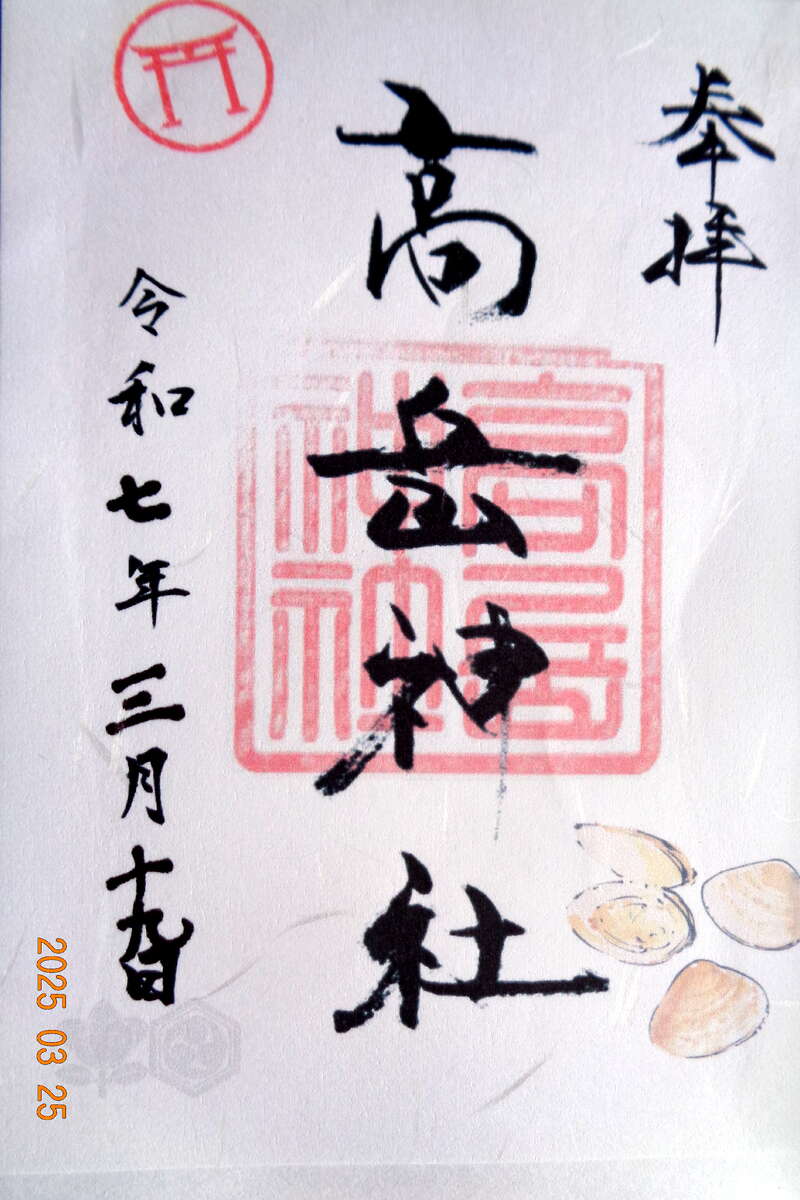 奉拝
高岳神社
令和七年三月十九日
2025 03 25